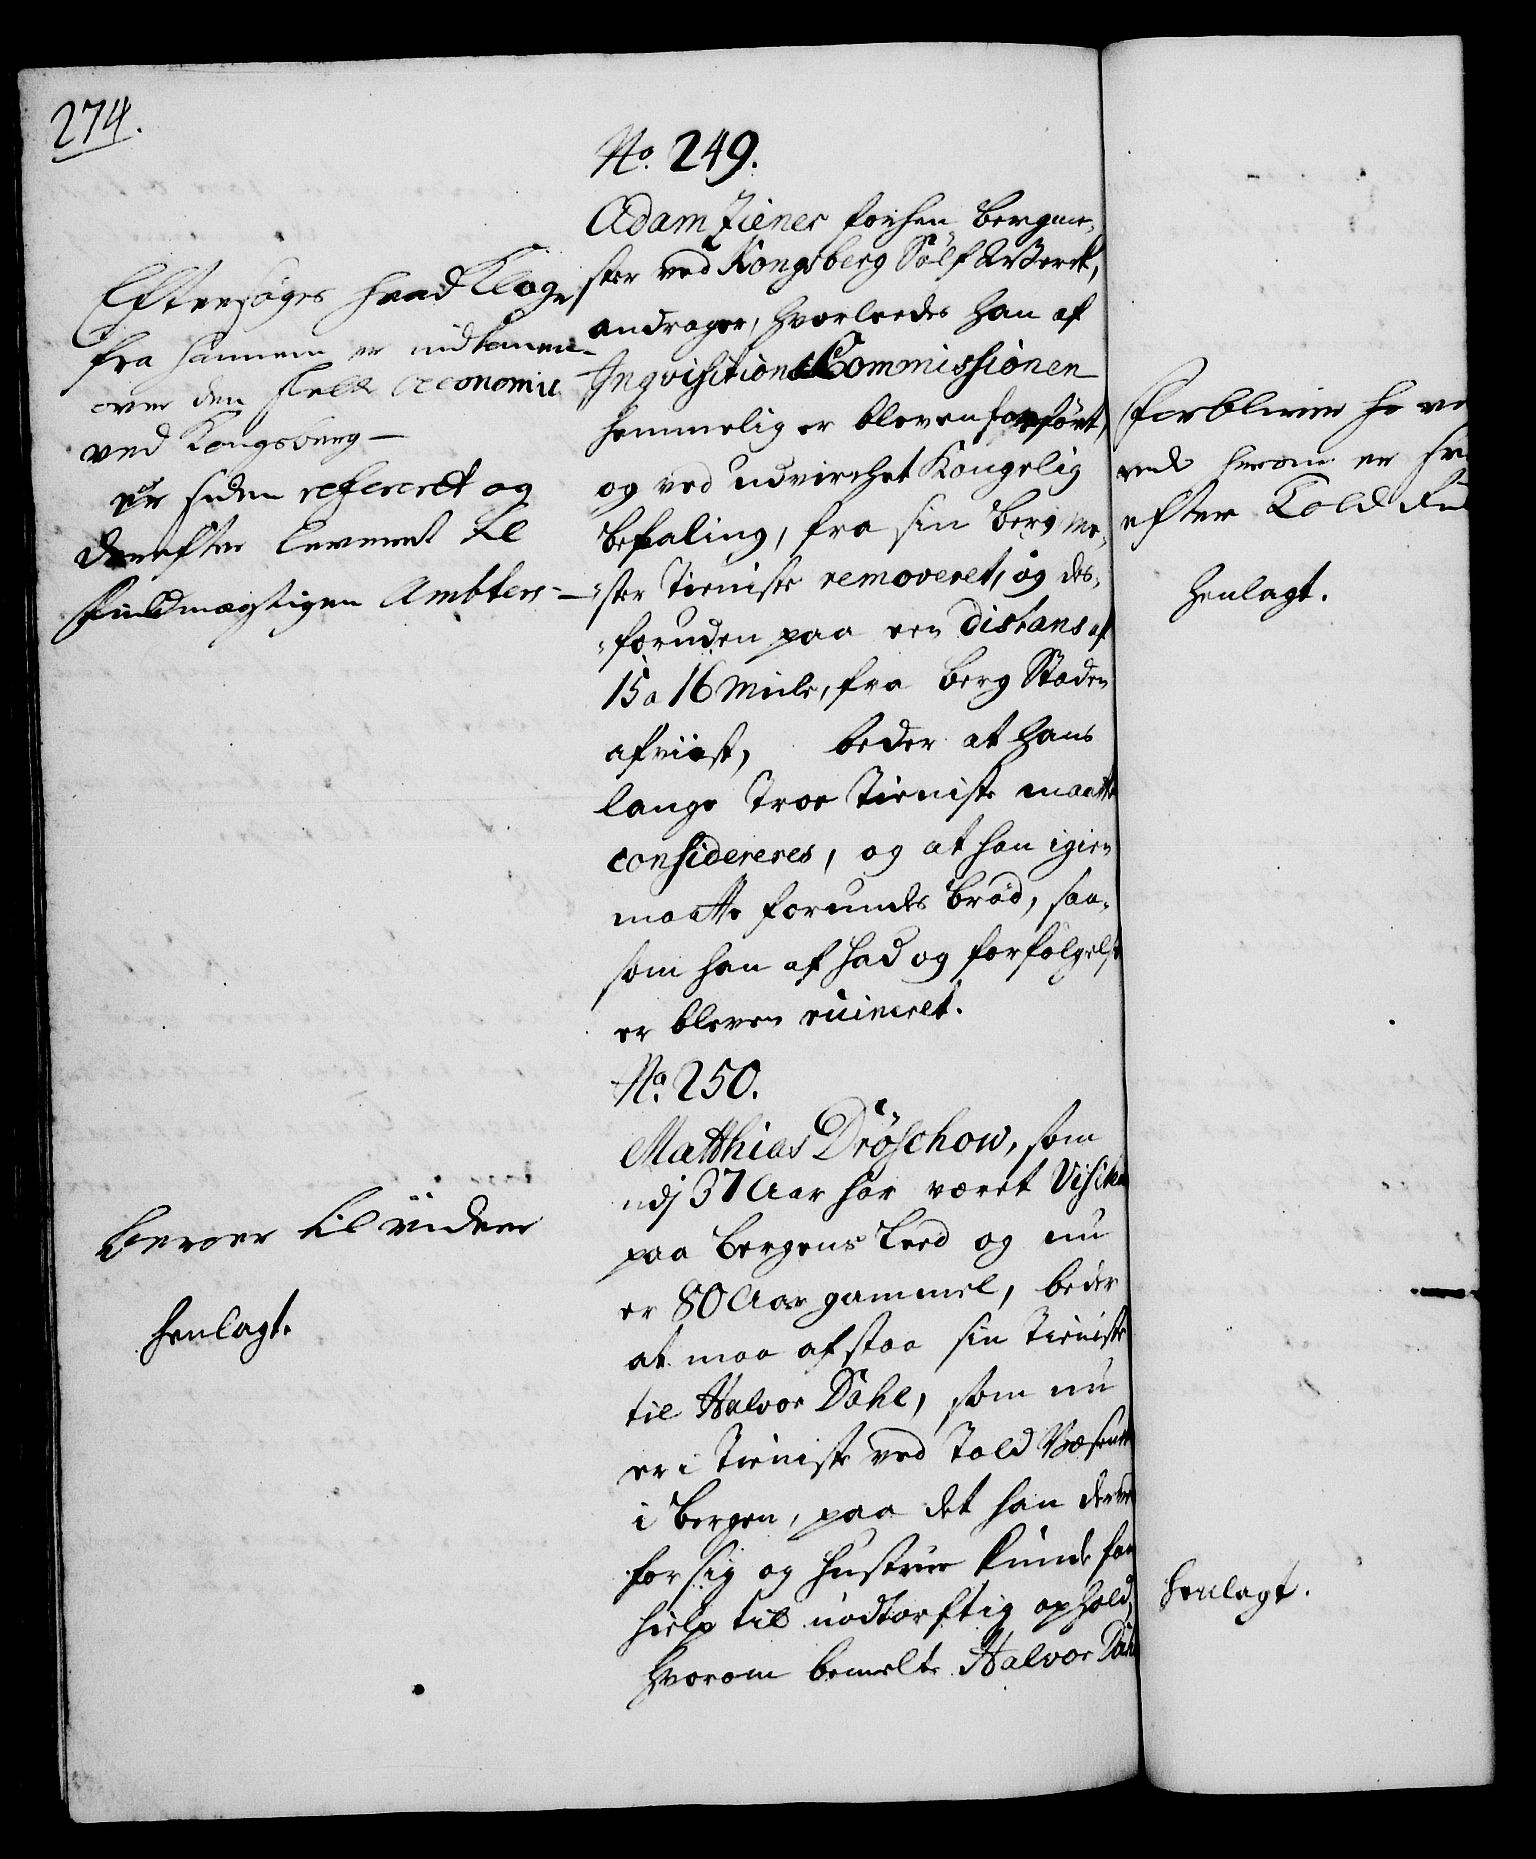 274.
No. 249.
Adam Ziener forhen Bergme-
ster ved Kongsberg Sölf Werck,
andrager, hvorleedes han af
Inqvisitions Commissionen
hemmelig er bleven forfört,
og ved udvirchet Kongelig
Befaling, fra sin Berg me-
ster Tieniste removeret, og des-
foruden paa een distans af
15 a 16 Miile, fra Berg Staden
afviist, beder at hans
lange troe Tieniste maatte
considereres, og at han igien
maatte forundes Bröd, saa-
som han af had og forfölgelse
er bleven ruineret.
Eftersøges hvad Klage
fra hannem er indkommen
over den slette oeconomie
ved Kongsberg-
er siden refereret og
derefter leveret til
fuldmægtigen Ambters-
No. 250.
Matthias Dröschow, som
udj 37 Aar har været Visiteur
paa Bergens Leed og nu
er 80 Aar gammel, beder
at maa afstaa sin Tieniste
til Halvor Dahl, som nu
er i Tieniste ved Told Væsenet
i Bergen, paa det han derved
for sig og Hustrue kunde faa
hielp til nödtörftig ophold,
hvorom bemelte Halvor Dahl
Beroer til viidere
henlagt.
Forbliver
efter Told
Henlagt.
henlagt.